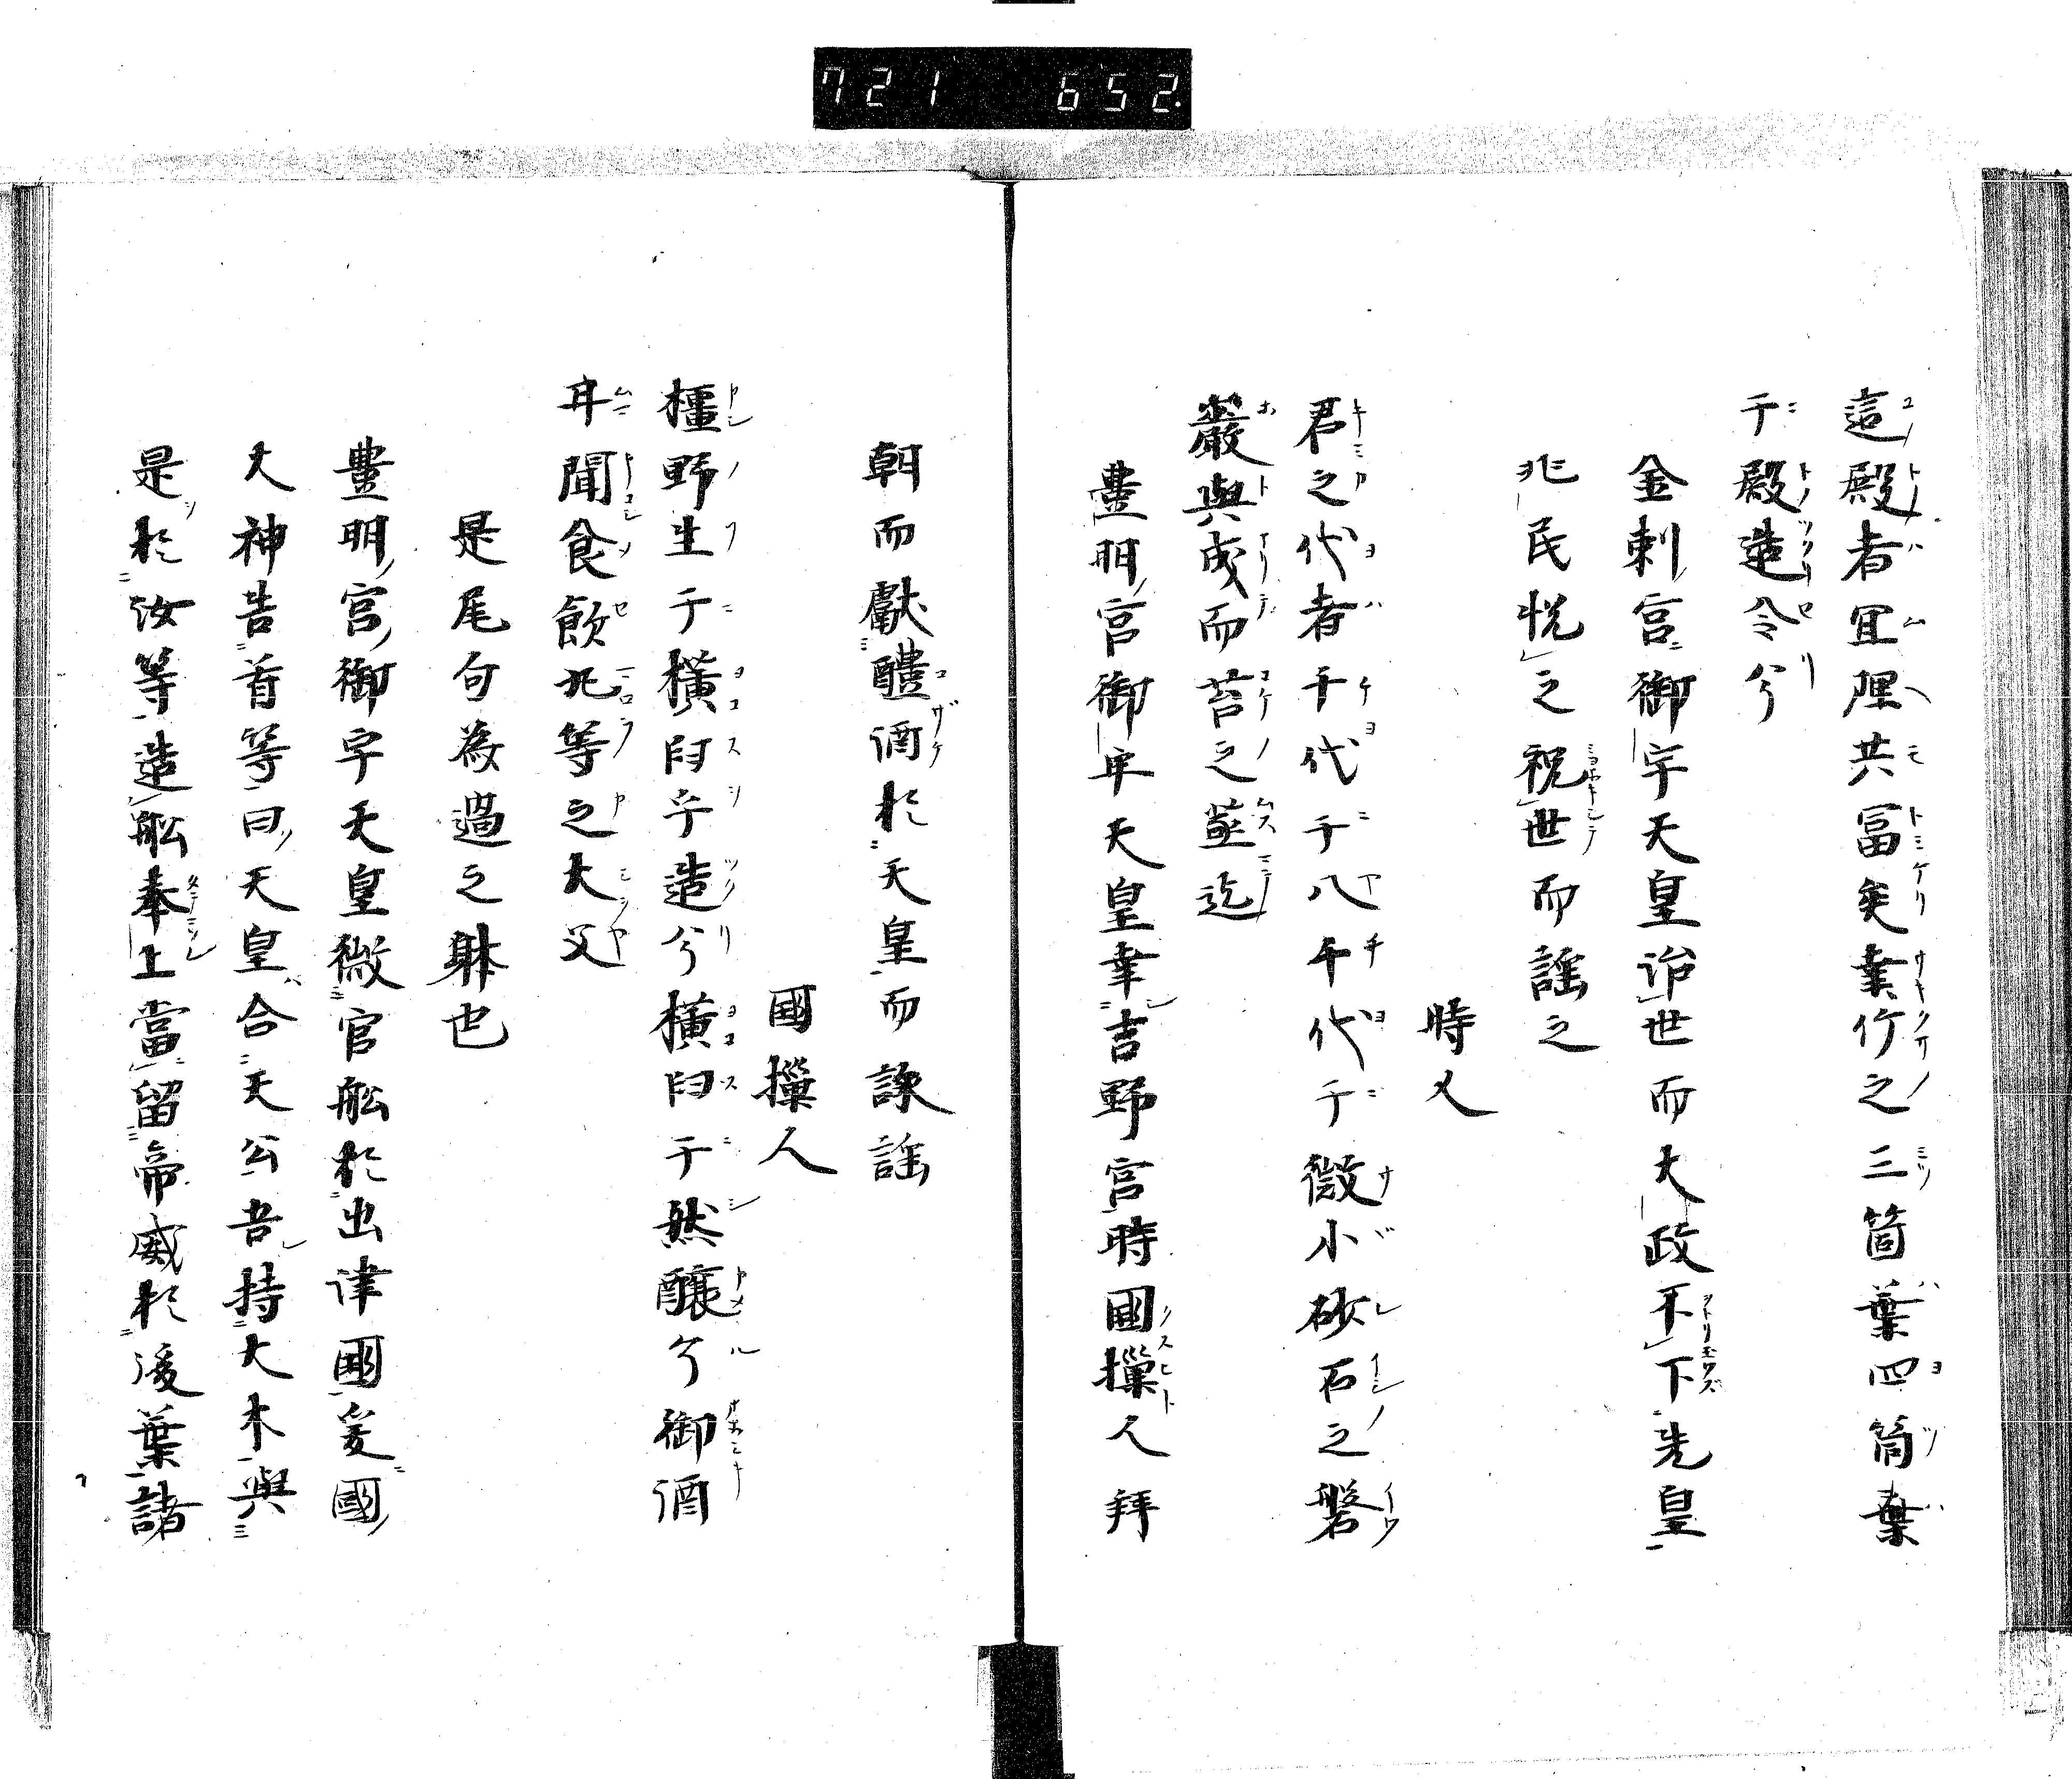 721 652.
這殿者宜理共冨矣幸竹之三箇葉四箇葉
于殿造令兮
金刺宮御宇天皇治世而大政不下先皇
兆民悦之祝世而謡之
時人
君之代者千代于八千代于微小砂石之磐
巖與成而苔之蒸迄
豊明宮御宇天皇幸吉野宮時國樔人拜
朝而獻醴酒於天皇而詠謡
國樔人
橿野生于横臼乎造兮横臼于然釀兮御酒
聞食飲兆等之大父
是尾句為過之躰也
豊明宮御宇天皇微官舩於出津國爰國
大神告首等曰天皇合天公吾持大木與
是於汝等造舩奉上當留帝威於後葉諸